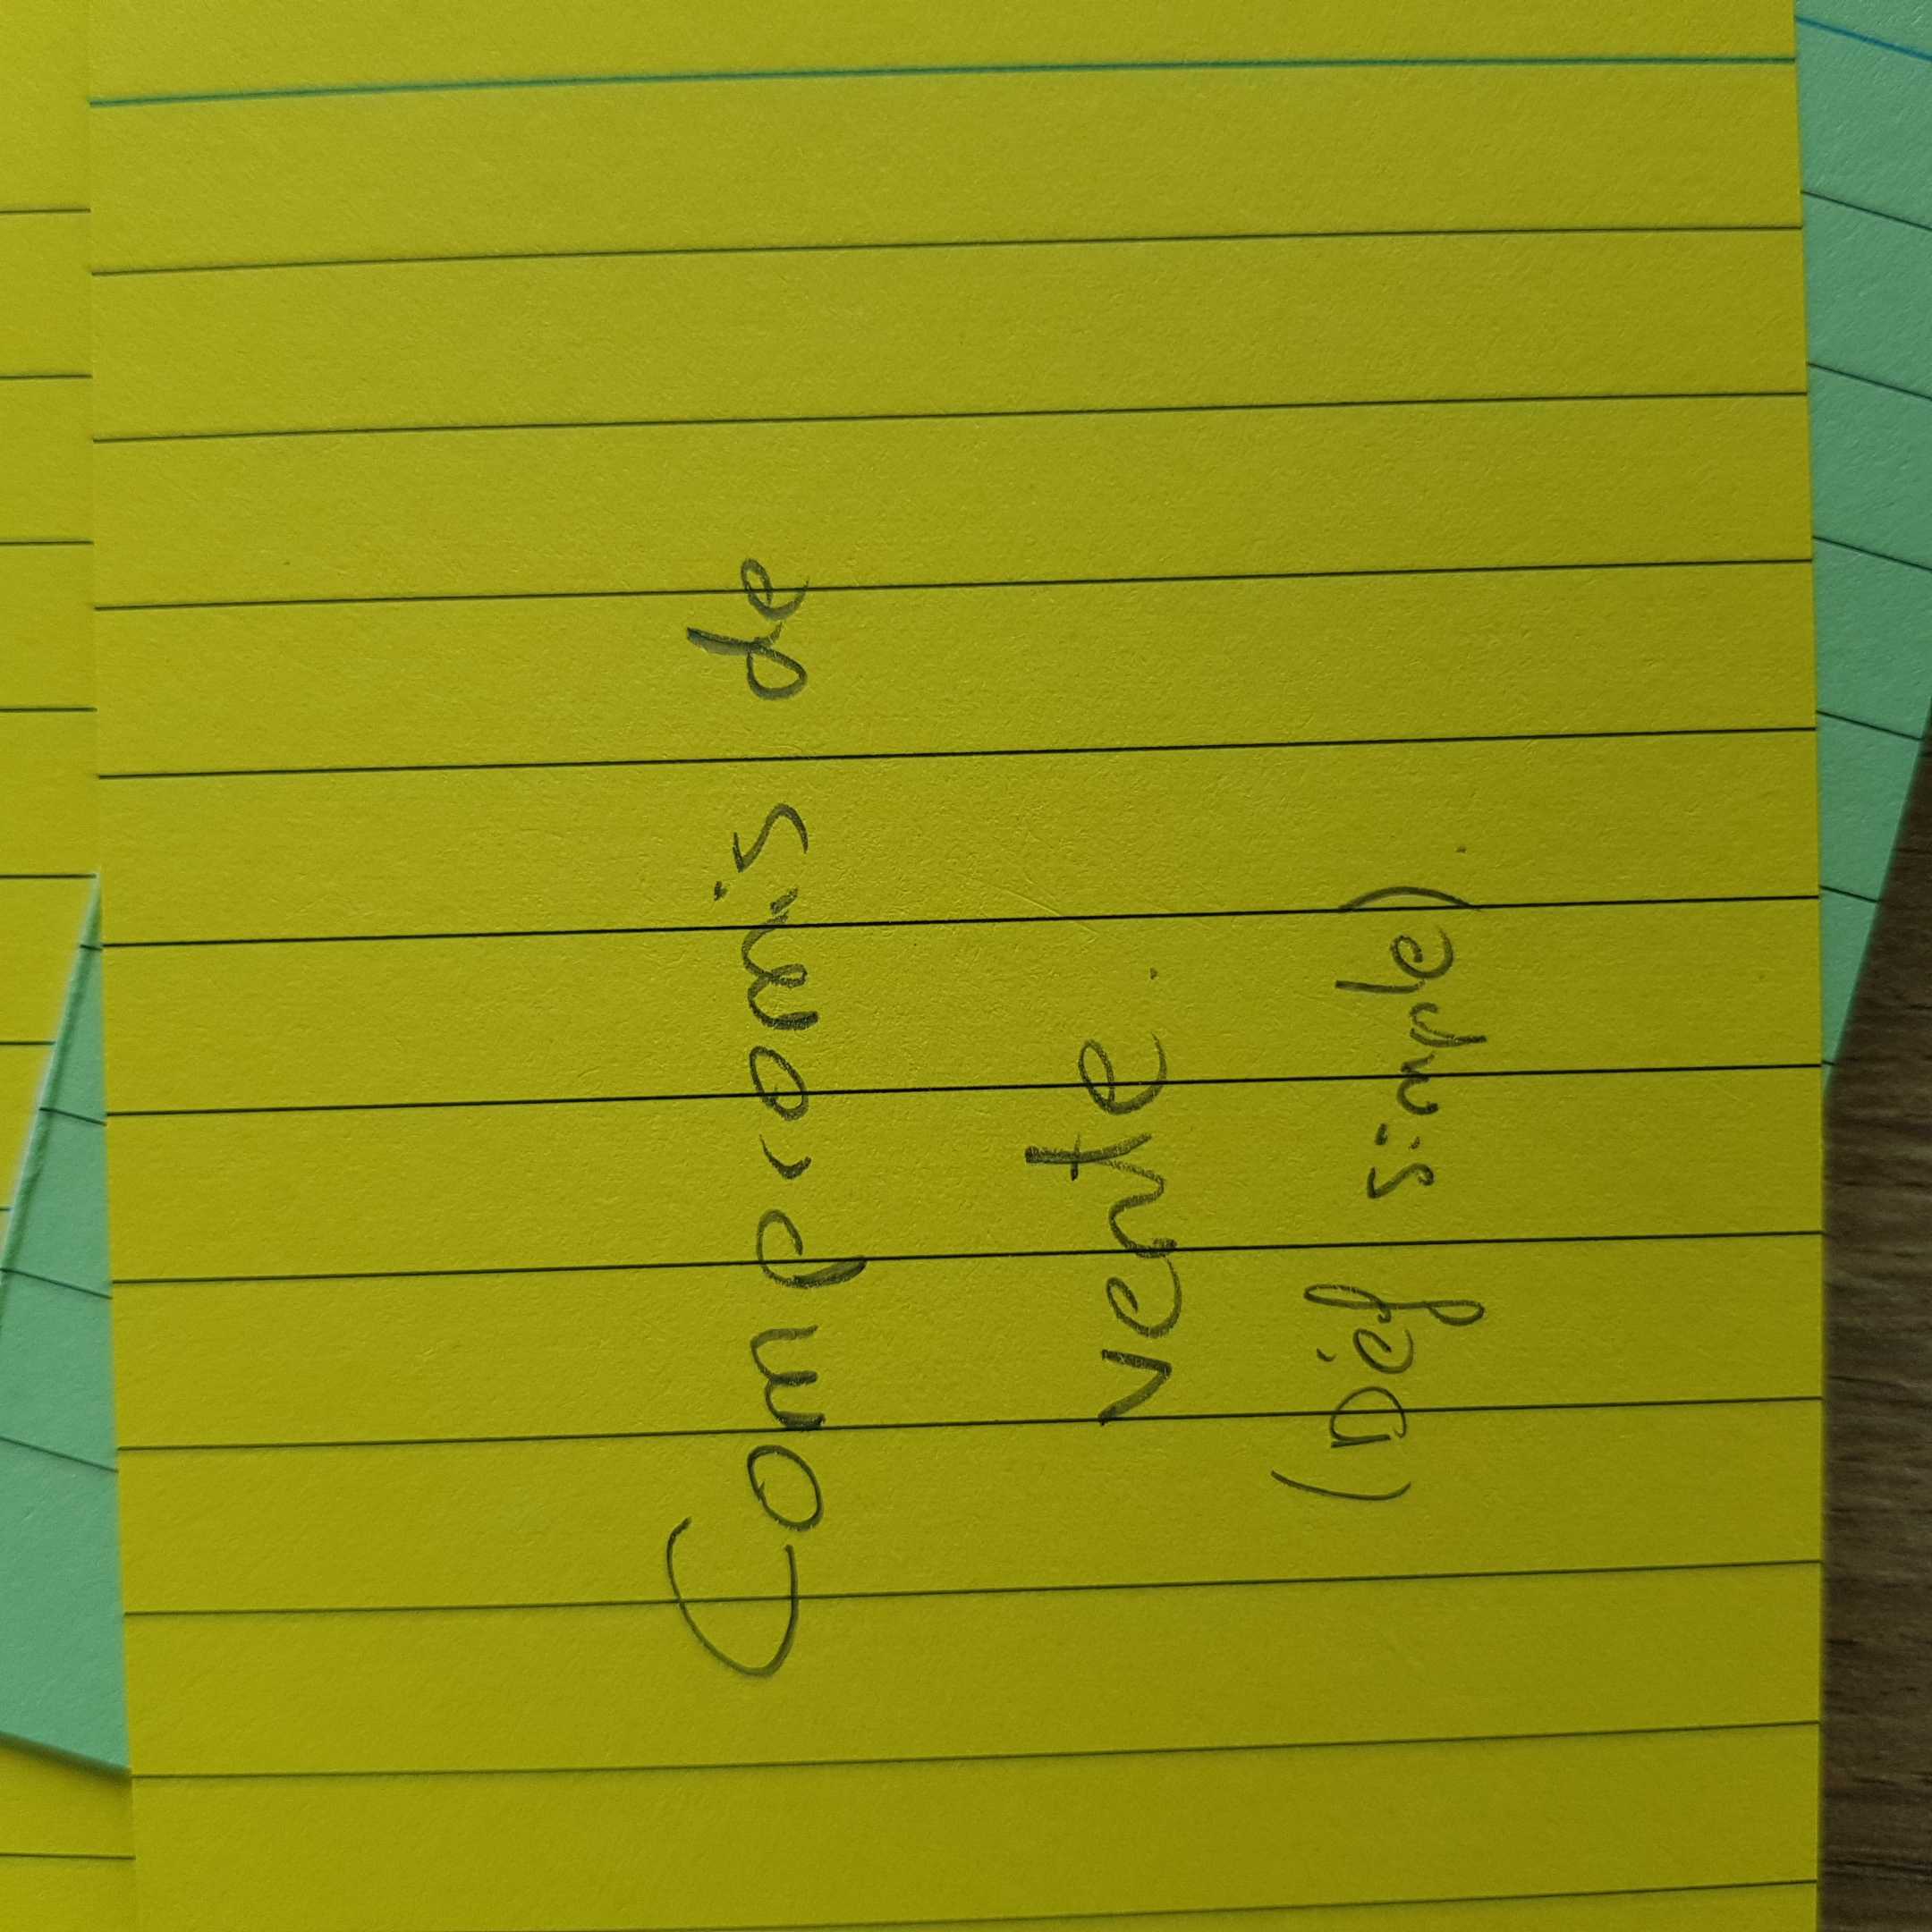 Compromis de
vente.
(Déf simple).